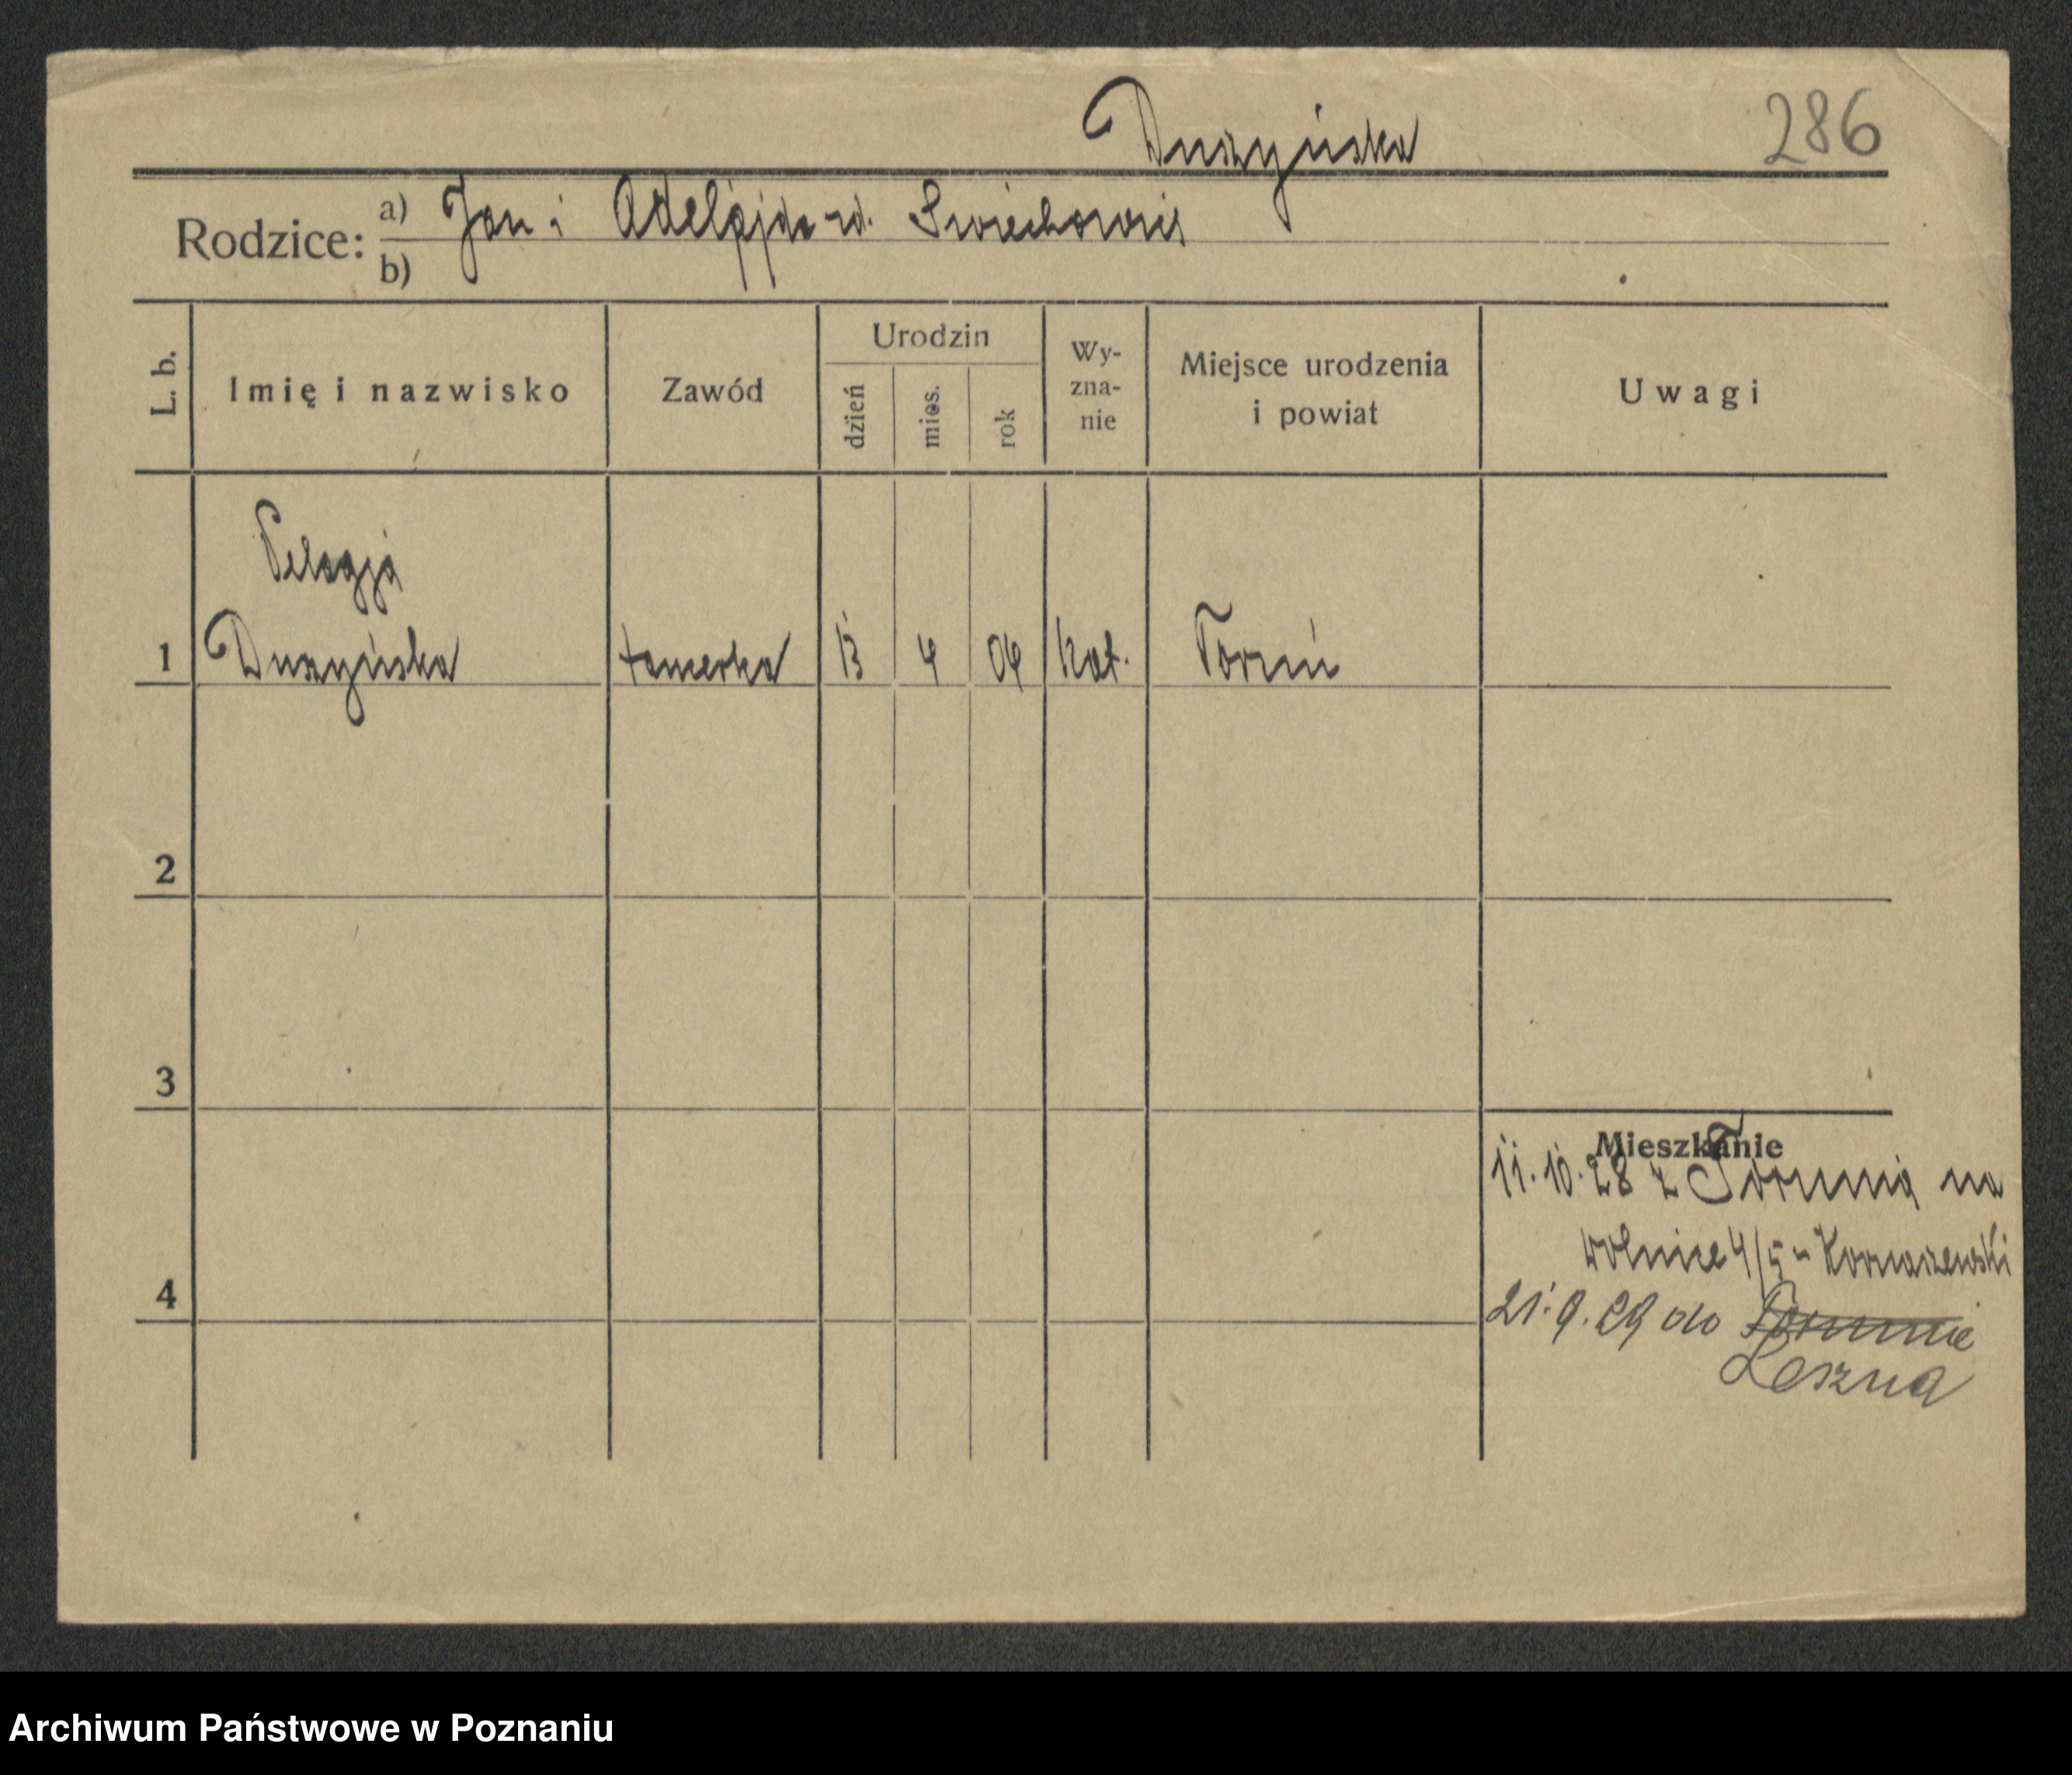 Duszyńska 286
Rodzice: a) Jan i Adelajda zd.
b)
L. b. Imię i nazwisko Zawód Urodzin dzień mies. rok Wy-zna-nie Miejsce urodzenia i powiat Uwagi
Pelagja
1 Duszyńska 13 4 04 kat. Toruń
2
3
Mieszkanie
11.10.28 z Torunia na
Wolnice 4/5 u
4
21.9.29 do Torunia
Leszna
Archiwum Państwowe w Poznaniu